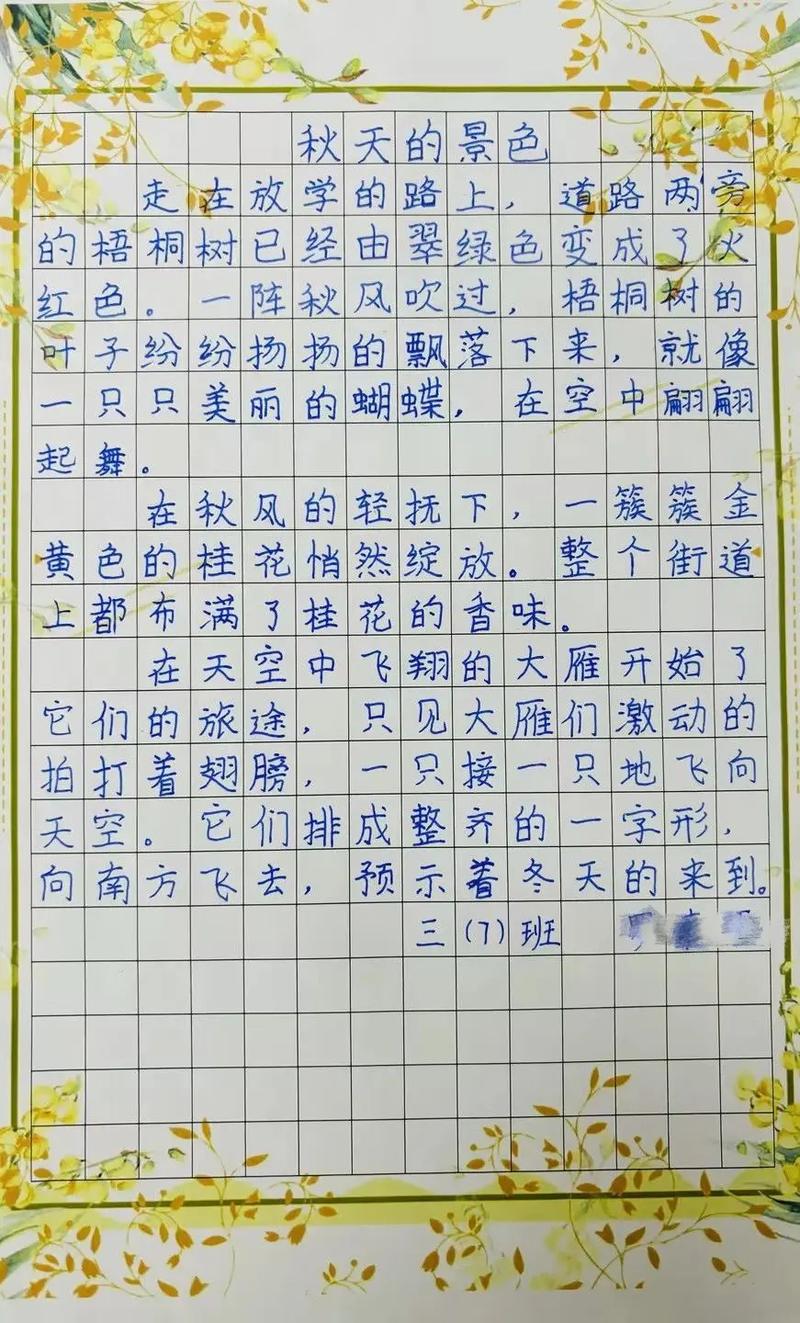 秋天的景色
走在放学的路上，道路两旁
的梧桐树已经由翠绿色变成了火
红色。一阵秋风吹过，梧桐树的
叶子纷纷扬扬的飘落下来，就像
一只只美丽的蝴蝶，在空中翩翩
起舞。
在秋风的轻抚下，一簇簇金
黄色的桂花悄然绽放。整个街道
上都布满了桂花的香味。
在天空中飞翔的大雁开始了
它们的旅途，只见大雁们激动的
拍打着翅膀，一只接一只地飞向
天空。它们排成整齐的一字形，
向南方飞去，预示着冬天的来到。
三(7)班